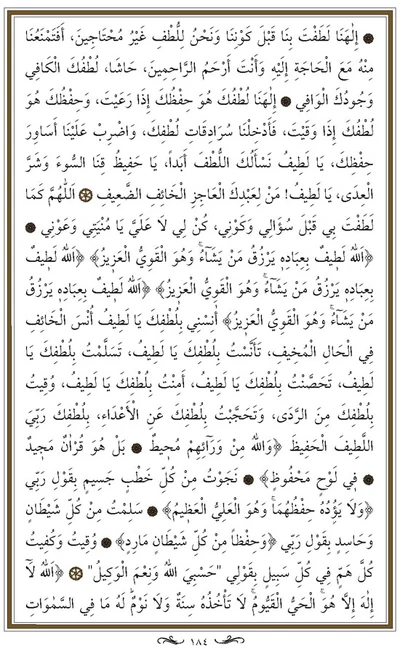 إِلٰهَنَا لَطَفْتَ بِنَا قَبْلَ كَوْنِنَا وَنَحْنُ لِلُّطْفِ غَيْرُ مُحْتَاجِينَ، أَفَتَمْنَعُنَا
مِنْهُ مَعَ الْحَاجَةِ إِلَيْهِ وَأَنْتَ أَرْحَمُ الرَّاحِمِينَ، حَاشَا، لُطْفُكَ الْكَافِي
وَجُودُكَ الْوَافِي ۞ إِلٰهَنَا لُطْفُكَ هُوَ حِفْظُكَ إِذَا رَعَيْتَ، وَحِفْظُكَ هُوَ
لُطْفُكَ إِذَا وَقَيْتَ، فَأَدْخِلْنَا سُرَادِقَاتِ لُطْفِكَ، وَاضْرِبْ عَلَيْنَا أَسَاوِرَ
حِفْظِكَ، يَا لَطِيفُ نَسْأَلُكَ اللُّطْفَ أَبَدًا، يَا حَفِيظُ قِنَا السُّوءَ وَشَرَّ
الْعِدَى، يَا لَطِيفُ! مَنْ لِعَبْدِكَ الْعَاجِزِ الْخَائِفِ الضَّعِيفِ ۞ اَللّٰهُمَّ كَمَا
لَطَفْتَ بِي قَبْلَ سُؤَالِي وَكَوْنِي، كُنْ لِي لَا عَلَيَّ يَا مُنْيَتِي وَعَوْنِي ۞
﴿اَللهُ لَطِيفٌ بِعِبَادِهِ يَرْزُقُ مَنْ يَشَاءُ وَهُوَ الْقَوِيُّ الْعَزِيزُ﴾ ﴿اَللهُ لَطِيفٌ
بِعِبَادِهِ يَرْزُقُ مَنْ يَشَاءُ وَهُوَ الْقَوِيُّ الْعَزِيزُ﴾ ﴿اَللهُ لَطِيفٌ بِعِبَادِهِ يَرْزُقُ
مَنْ يَشَاءُ وَهُوَ الْقَوِيُّ الْعَزِيزُ﴾ آنِسْنِي بِلُطْفِكَ يَا لَطِيفُ أُنْسَ الْخَائِفِ
فِي الْحَالِ الْمُخِيفِ، تَأَنَّسْتُ بِلُطْفِكَ يَا لَطِيفُ، تَسَلَّمْتُ بِلُطْفِكَ يَا
لَطِيفُ، تَحَصَّنْتُ بِلُطْفِكَ يَا لَطِيفُ، أَمِنْتُ بِلُطْفِكَ يَا لَطِيفُ، وُقِيتُ
بِلُطْفِكَ مِنَ الرَّدَى، وَتَحَجَّبْتُ بِلُطْفِكَ عَنِ الْأَعْدَاءِ، بِلُطْفِكَ رَبِّيَ
اللَّطِيفَ الْحَفِيظَ ﴿وَاللهُ مِنْ وَرَآئِهِمْ مُحِيطٌ ۞ بَلْ هُوَ قُرْاٰنٌ مَجِيدٌ
۞ فِي لَوْحٍ مَحْفُوظٍ﴾ ۞ نَجَوْتُ مِنْ كُلِّ خَطْبٍ جَسِيمٍ بِقَوْلِ رَبِّي
﴿وَلَا يَؤُدُهُ حِفْظُهُمَا وَهُوَ الْعَلِيُّ الْعَظِيمُ﴾ ۞ سَلِمْتُ مِنْ كُلِّ شَيْطَانٍ
وَحَاسِدٍ بِقَوْلِ رَبِّي ﴿وَحِفْظاً مِنْ كُلِّ شَيْطَانٍ مَارِدٍ﴾ ۞ وُقِيتُ وَكُفِيتُ
كُلَّ هَمٍّ فِي كُلِّ سَبِيلٍ بِقَوْلِي "حَسْبِيَ اللهُ وَنِعْمَ الْوَكِيلُ" ۞ ﴿اَللهُ لَآ
إِلٰهَ إِلَّا هُوَ الْحَيُّ الْقَيُّومُ لَا تَأْخُذُهُ سِنَةٌ وَلَا نَوْمٌ لَهُ مَا فِي السَّمٰوَاتِ
١٨٤